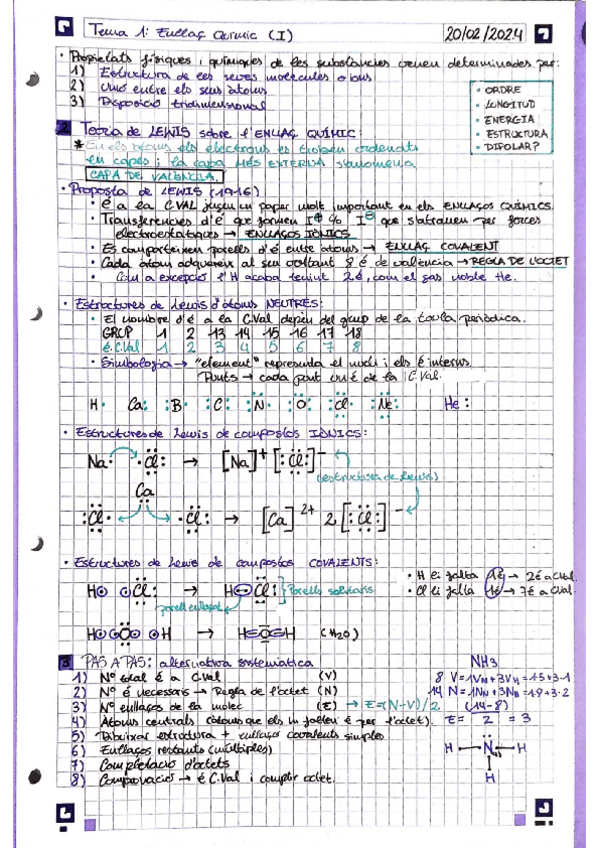 Tema 1: Enllaç Químic (I)
20/02/2024
· Propietats físiques i químiques de les substàncies venen determinades per:
1) Estructura de les seves molècules o ions
2) Unió entre els seus àtoms
3) Disposició tridimensional
· ORDRE
· LONGITUD
· ENERGIA
· ESTRUCTURA
· DIPOLAR?
2 Teoria de LEWIS sobre l'ENLLAÇ QUÍMIC:
* En els àtoms els electrons es troben ordenats
en capes i la capa MÉS EXTERNA s'anomena
CAPA DE VALÈNCIA.
· Proposta de LEWIS (1916)
· é a la C.VAL juguen un paper molt important en els ENLLAÇOS QUÍMICS.
· Transferències d'é que formen I⊕ % I⊖ que s'atrauen per forces
electroestàtiques → ENLLAÇOS IÒNICS
· Es comparteixen parells d'é entre àtoms → ENLLAÇ COVALENT
· Cada àtom adquireix al seu voltant 8 é de valència → REGLA DE L'OCTET
· Com a excepció l'H acaba tenint 2é, com el gas noble He.
· Estructures de Lewis d'àtoms NEUTRES:
· El nombre d'é a la C.Val depèn del grup de la taula periòdica.
GRUP 1 2 13 14 15 16 17 18
é C.Val 1 2 3 4 5 6 7 8
· Simbologia → "element" representa el nucli i els é interns.
Punts → cada punt un é de la C.Val.
H· Ca: ·B· ·C: ·N· ·O: :Cl· :Ne: He:
· Estructures de Lewis de compostos IÒNICS:
Na· ·Cl: → [Na]+ [:Cl:]-
(estructura de Lewis)
Ca
:Cl· ·Cl: → [Ca]2+ 2[:Cl:]-
· Estructures de Lewis de compostos COVALENTS:
· H li falta 1é → 2é a CVal
H· ·Cl: → H Cl: } Parells solitaris
· Cl li falta 1é → 7é a CVal.
parell enllaçat
H· ·O· ·H → H-O-H (H2O)
3 PAS A PAS: alternativa sistemàtica
NH3
1) Nº total é a C.Val (V)
8 V=1VN+3VH=1·5+3·1
2) Nº é necessaris → Regla de l'octet (N)
14 N=1NN+3NH=1·8+3·2
3) Nº enllaços de la molec (E) → E=(N-V)/2
(14-8)
E= 2 = 3
4) Àtoms centrals
5) Dibuixar estructura + enllaços covalents simples
H - N - H
6) Enllaços restants (múltiples)
H
7) Completació d'octets
8) Comprovació → é C.Val i complir octet.